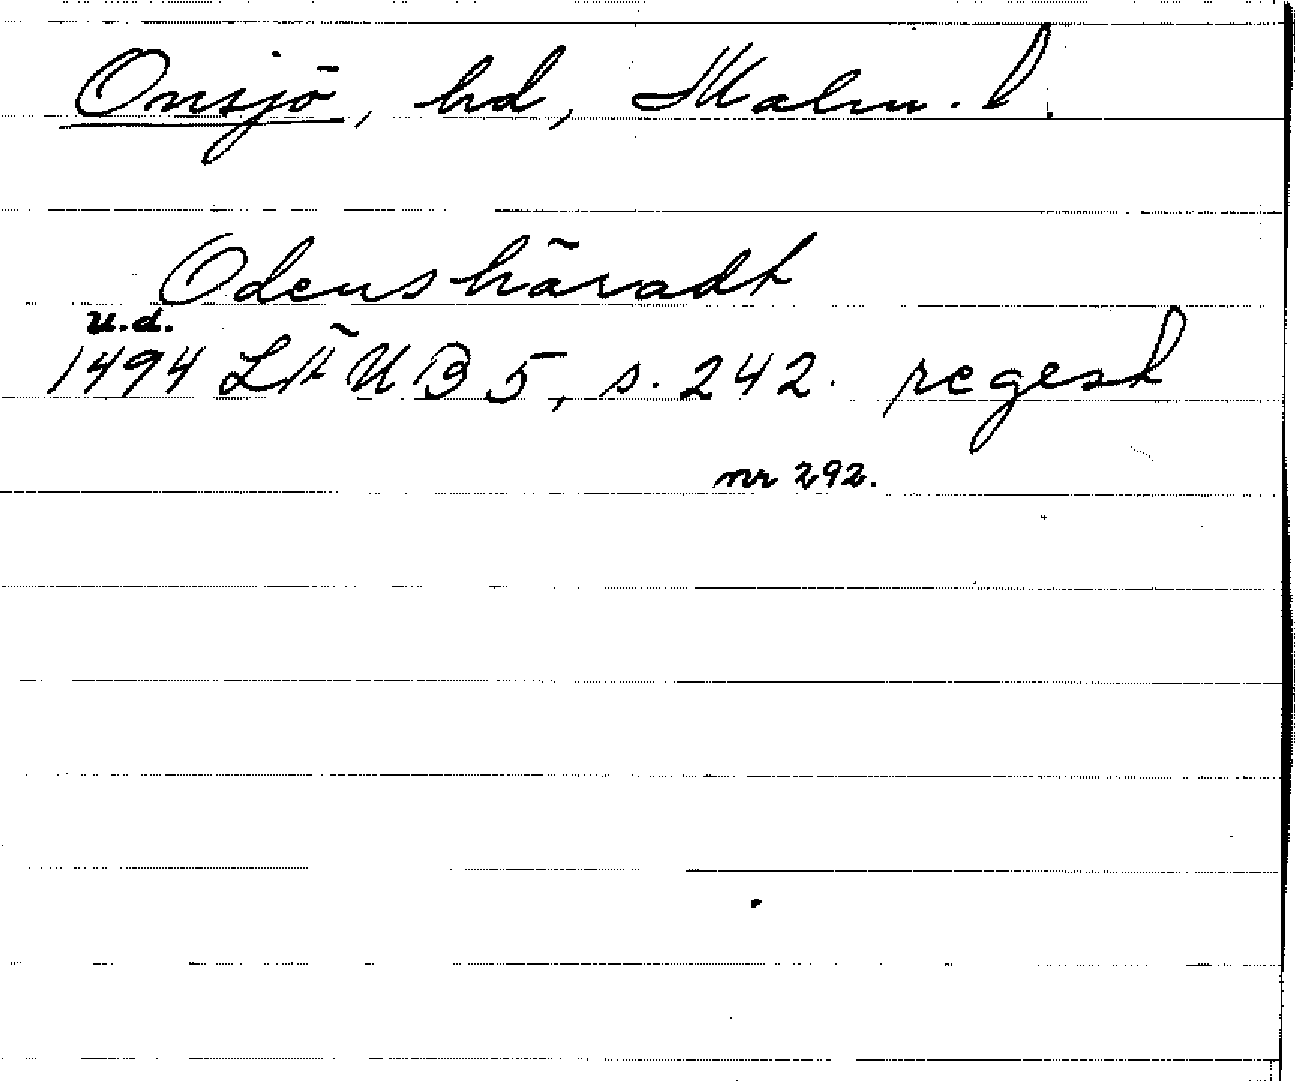 Onsjö, hd, Malm. l.
Odenshäradt
u.d.
1494 LÄUB 5, s. 242. regest
nr 292.